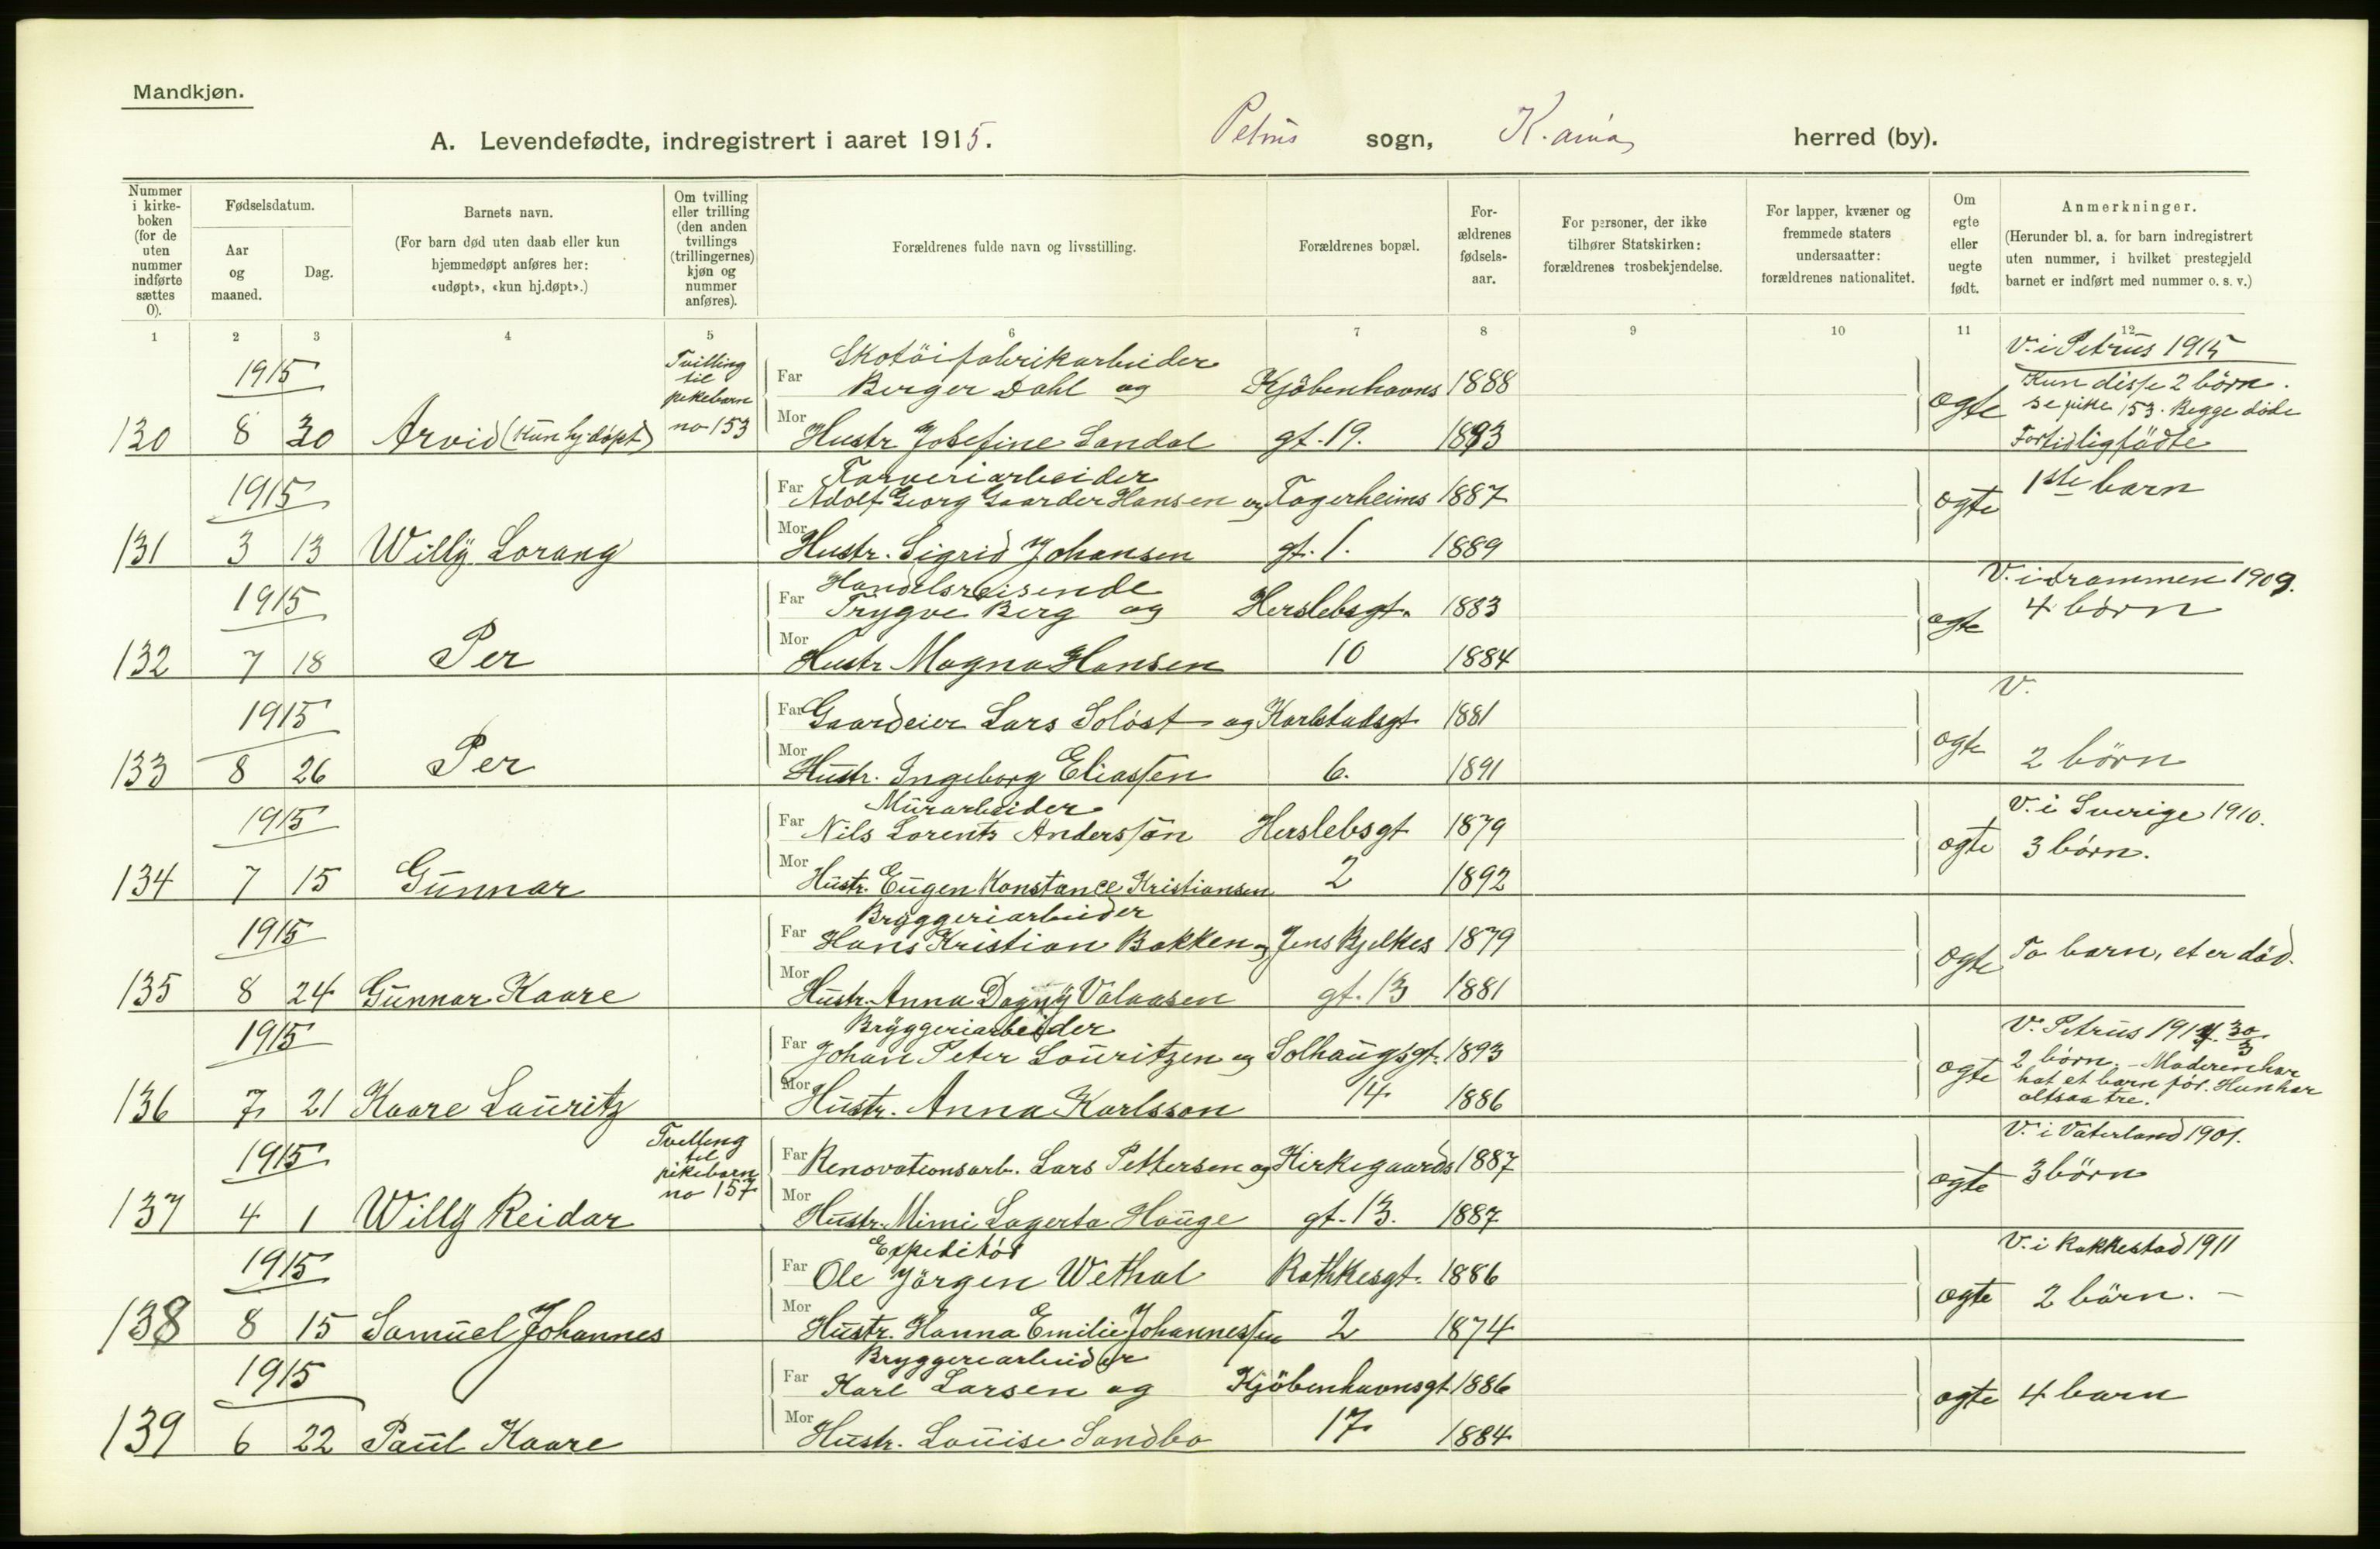 Mandkjøn.
A. Levendefødte, indregistrert i aaret 1915. Petrus sogn, K.ania herred (by).
Nummer i kirkeboken (for de uten nummer indførte sættes 0).
Fødselsdatum.
Aar og maaned.
Dag.
Barnets navn.
(For barn død uten daab eller kun hjemmedøpt anføres her: «udøpt», «kun hj.døpt».)
Om tvilling eller trilling (den anden tvillings (trillingernes) kjøn og nummer anføres).
Forældrenes fulde navn og livsstilling.
Forældrenes bopæl.
For-ældrenes fødsels-aar.
For personer, der ikke tilhører Statskirken: forældrenes trosbekjendelse.
For lapper, kvæner og fremmede staters undersaatter: forældrenes nationalitet.
Om egte eller uegte født.
Anmerkninger.
(Herunder bl. a. for barn indregistrert uten nummer, i hvilket prestegjeld barnet er indført med nummer o. s. v.)
1 2 3 4 5 6 7 8 9 10 11 12
1915 Tvilling til pikebarn no 153 Skotöifabrikarbeider V. i Petrus 1915
Far Berger Dahl og Kjöbenhavns 1888 Kun disse 2 börn.
130 8 30 Arvid (kun hj.döpt) Mor Hustr Josefine Landal gt. 19. 1893 ogte se pike 153. Begge döde
Fortidligfödte
1915 Farveriarbeider
Far Adolf Georg Gaarder Hansen og Fagerheims 1887 1ste barn
131 3 13 Willy Lorang Mor Hustr. Sigrid Johansen gt. 1. 1889 ogte
1915 Handelsreisende V. i Drammen 1909.
Far Trygve Berg og Herslebsgt. 1883 4 börn
132 7 18 Per Mor Hustr Magna Hansen 10 1884 ogte
1915 Far Gaardeier Lars Solöst og Karlstadsgt 1881 V.
133 8 26 Per Mor Hustr. Ingeborg Eliassen 6. 1891 ogte 2 börn
1915 Murarbeider V. i Sverige 1910.
Far Nils Lorents Anderssön Herslebsgt 1879 3 börn.
134 7 15 Gunnar Mor Hustr. Eugen Konstance Kristiansen 2 1892 ogte
1915 Bryggeriarbeider
Far Hans Kristian Bakken og Jens Bjelkes 1879 To barn, et er död.
135 8 24 Gunnar Kaare Mor Hustr. Anna Dagny Valaasen gt. 13 1881 ogte
1915 Bryggeriarbeider V. Petrus 1914 30/3
Far Johan Peter Louritzen og Solhaugsgt. 1893 2 börn. - Moderen har
136 7 21 Kaare Lauritz Mor Hustr. Anna Karlsson 14 1886 ogte hat et barn för. Hun har
altsaa tre.
1915 Tvilling til pikebarn no 157 V. i Vaterland 1901.
Far Renovationsarb. Lars Pettersen og Kirkegaards 1887 3 börn
137 4 1 Willy Reidar Mor Hustr. Mimi Lagerta Hauge gt. 13. 1887 ogte
1915 Expeditör V. i Rakkestad 1911
Far Ole Jörgen Wethal Rathkesgt. 1886
138 8 15 Samuel Johannes Mor Hustr. Hanna Emilie Johannessen 2 1874 ogte 2 börn. -
1915 Bryggeriarbeider
Far Karl Larsen og Kjöbenhavnsgt 1886 4 barn
139 6 22 Paul Kaare Mor Hustr. Louise Sandbo 17 1884 ogte